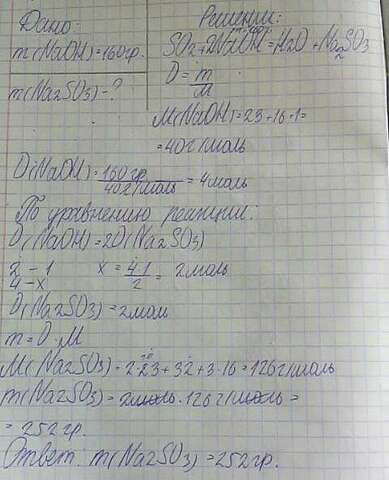 Дано:
m(NaOH)=160гр.
m(Na2SO3)-?
Решение:
SO2+2NaOH=H2O+Na2SO3
D=m/M
M(NaOH)=23+16+1=
=40г/моль
D(NaOH)=160гр/40г/моль=4моль
По уравнению реакции:
D(NaOH)=2D(Na2SO3)
2-1
4-x
x=4·1/2=2моль
D(Na2SO3)=2мол
m=D·M
M(Na2SO3)=2·23+32+3·16=126г/моль
m(Na2SO3)=2моль·126г/моль=
=252гр.
Ответ m(Na2SO3)=252гр.